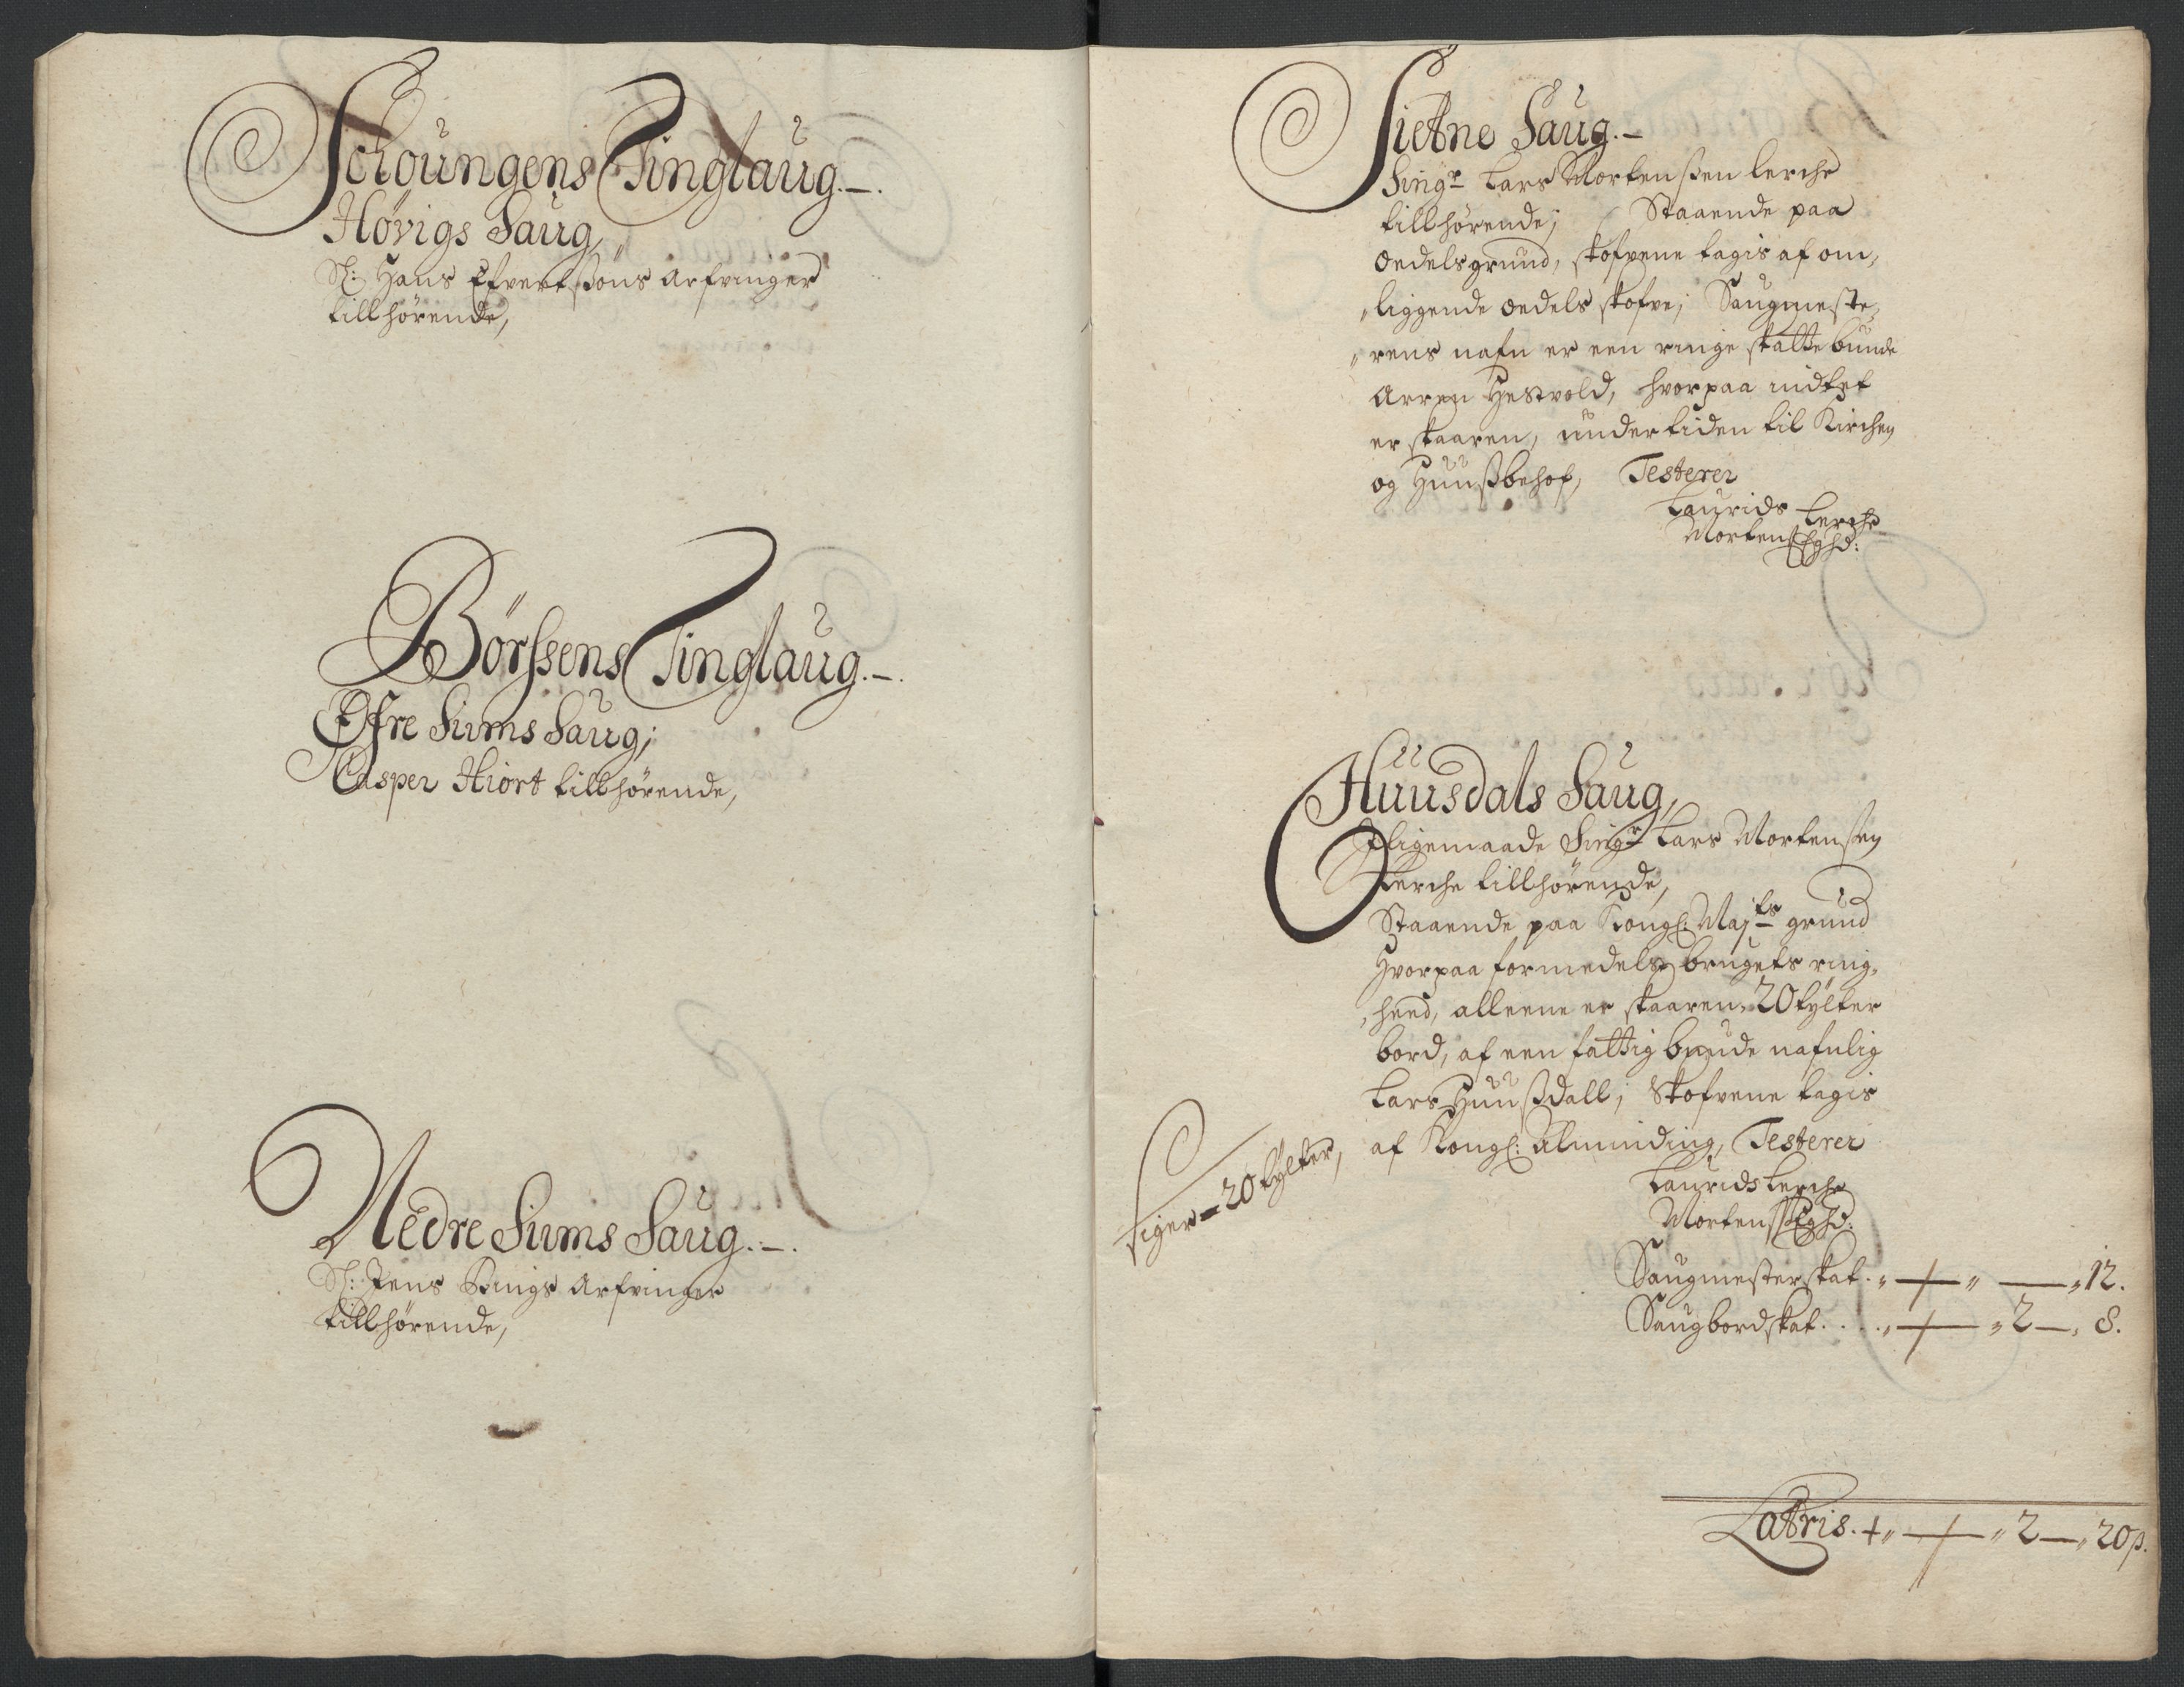 Schoungens Tinglaug.-.
Høvigs Saug,
Sl: Hans Efvertsøns Arfvinger
tillhørende,
Börssens Tinglaug.-.
Øfre Sums Saug;
Casper Hiort tillhørende,
Nedre Sums Saug.-.
Sl: Jens Arfvinger
tillhørende,
Sietne Saug.-
Sing.r Lars Mortenßen Lerche
tillhørende; Staaende paa
Oedelsgrund, skofvene tagis af om,
„liggende Oedels skofve; Saugmeste,
„rens nafn er een ringe skatte bunde
Arren Hestvold, hvorpaa indtet
er skaaren, undertiden til Kirchen
og Huußbehof, Testerer
Laurids Lerche
Mortens Eghd:
Huusdals Saug,
Ligemaade Sing.r Lars Mortensen
Lerche tillhørende,
Staaende paa Kongl: Maj.ts grund
Hvorpaa formedelst brugets ring,
„heed, alleene er skaaren 20 tylter
bord, af een fattig bunde nafnlig
Lars Huußdall; Skofvene tagis
af Kongl: Alminding, Testerer
siger - 20 tylter,
Laurids Lerche
Mortens Eghd:
Saugmesterskat. „ — „ — „ 12.
Saugbordskat. . . „ — „ 2 — „ 8.
Latris. + „ — „ 2 — „ 20 ß.